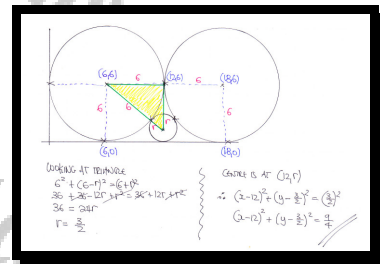 (6,6)
6
(12,6)
6
(18,6)
6
6
r
r
6
(6,0)
(18,0)
LOOKING AT TRIANGLE
6² + (6-r)² = (6+r)²
36 + 36 - 12r + r² = 36 + 12r + r²
36 = 24r
r = 3/2
CENTRE IS AT (12,r)
∴ (x-12)² + (y-3/2)² = (3/2)²
(x-12)² + (y-3/2)² = 9/4